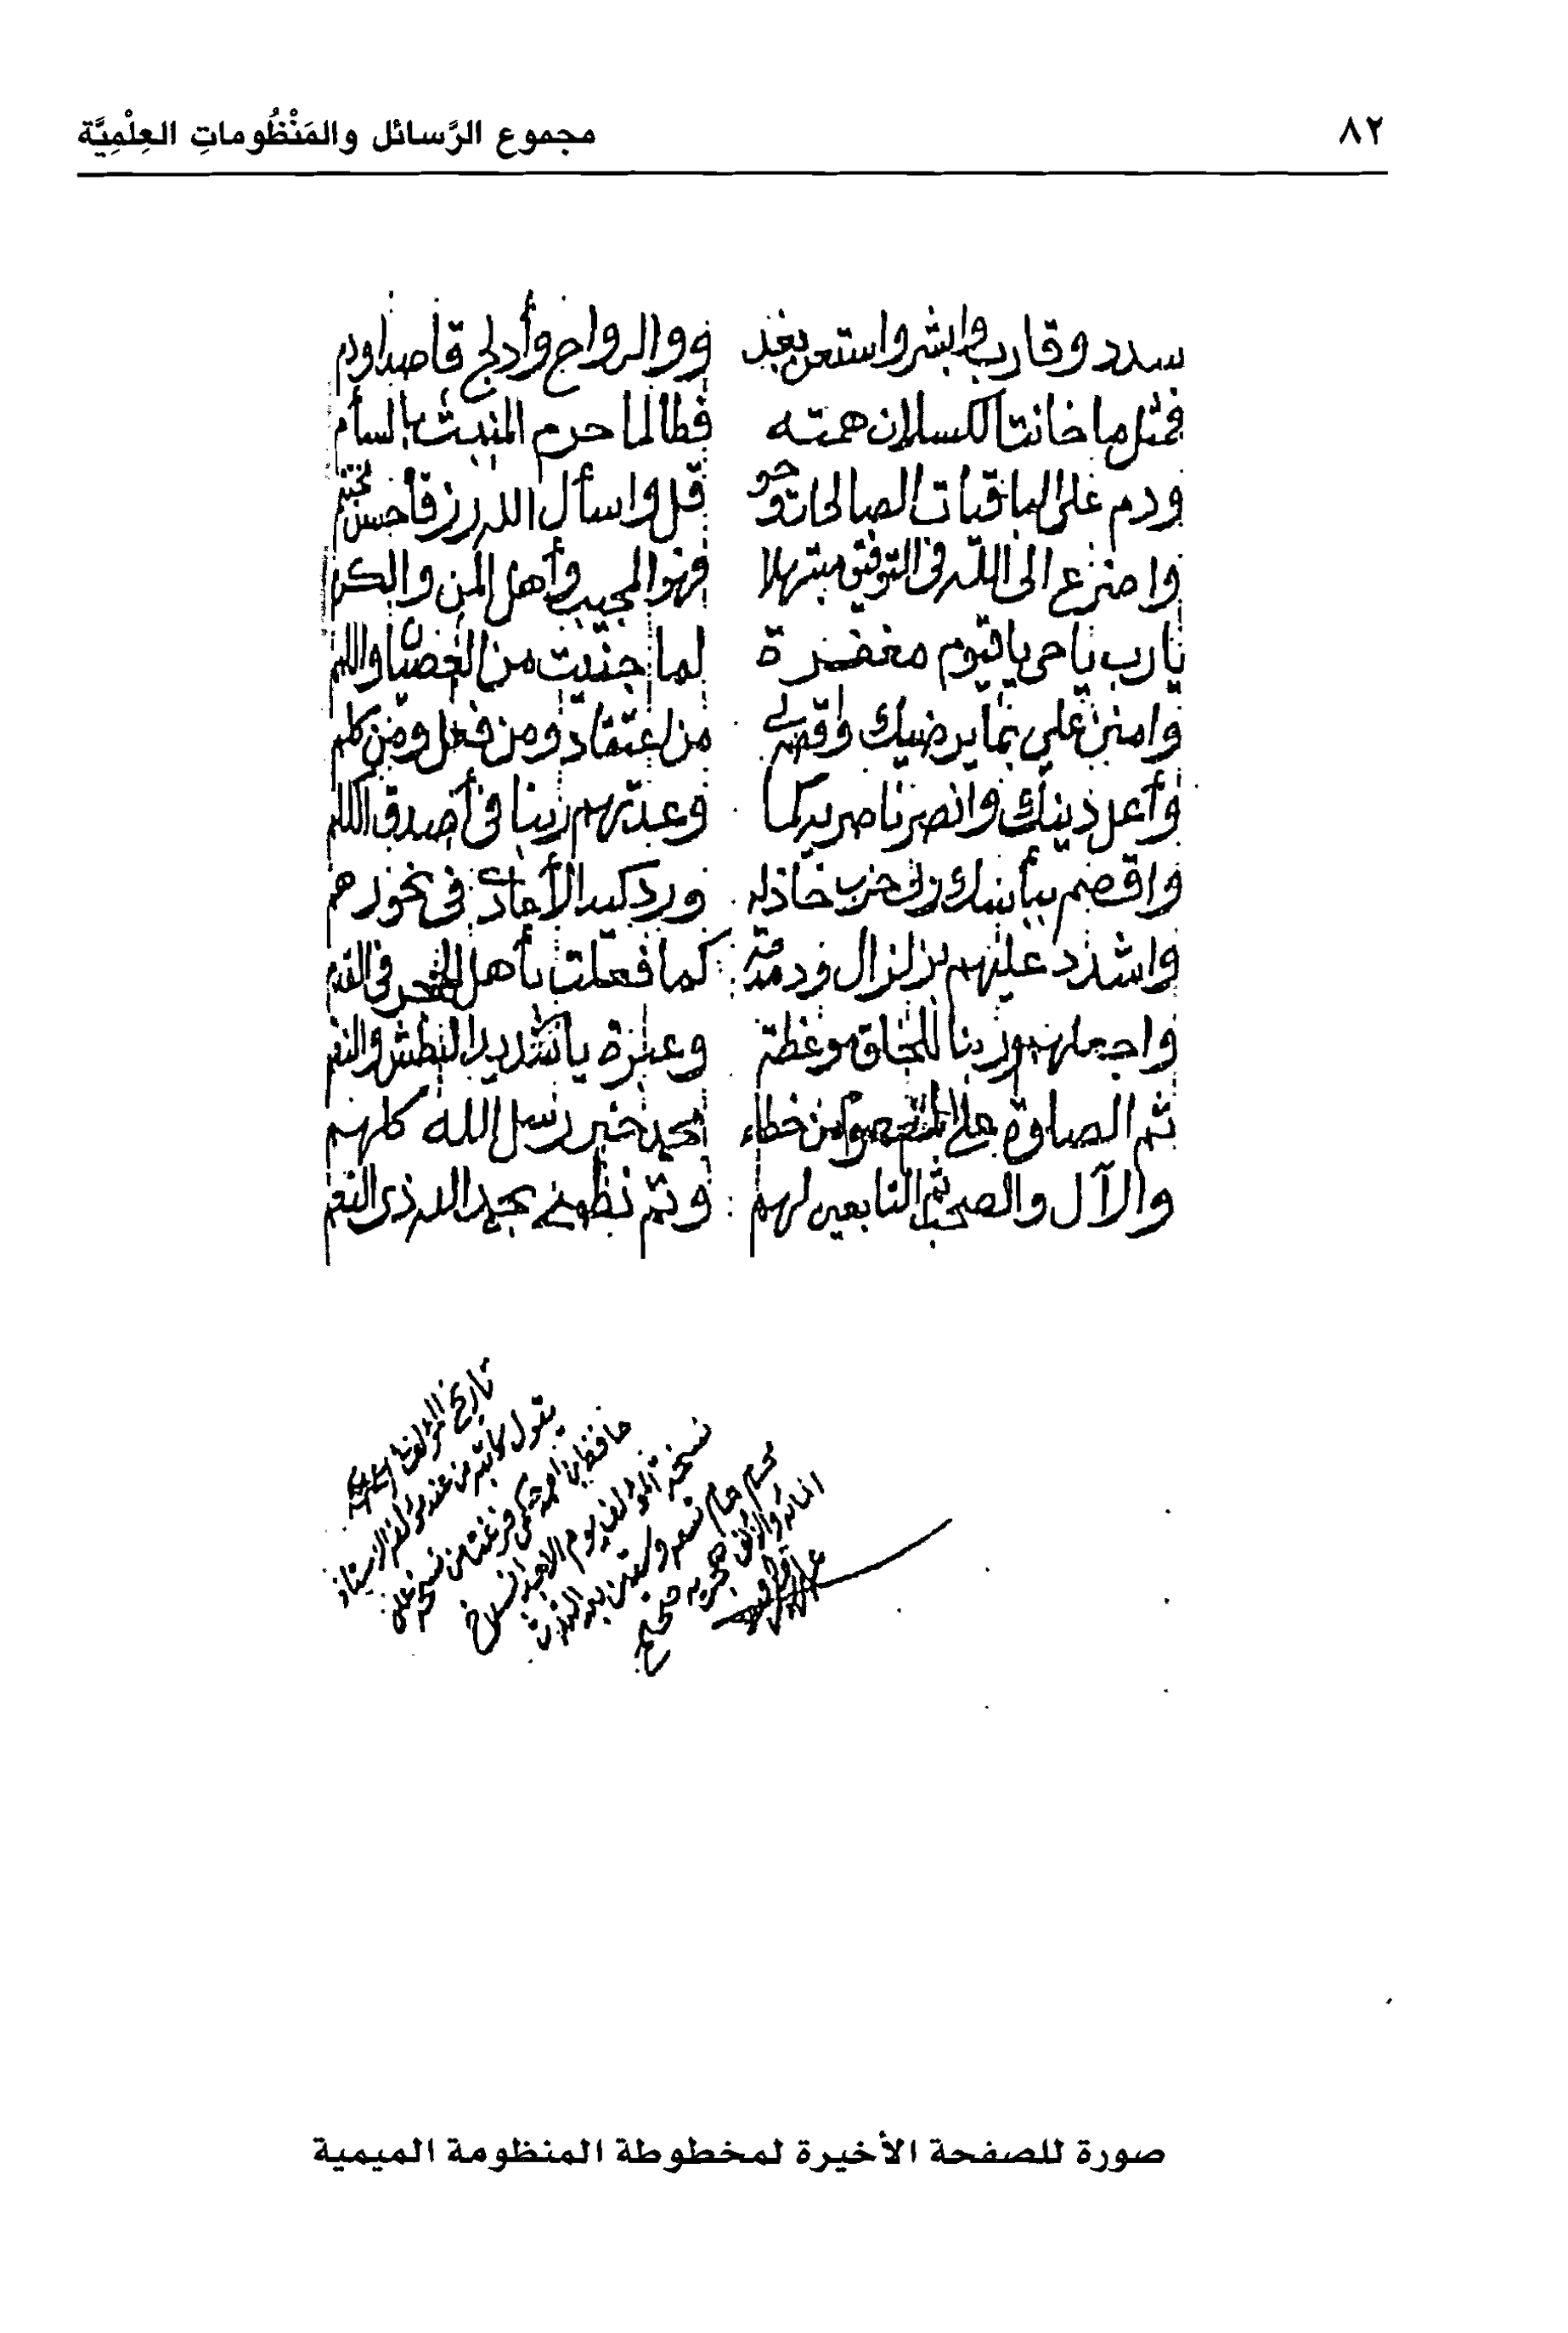 ٨٢ مجموع الرَّسائل والمَنْظُوماتِ العِلْمِيَّة
سدد وقارب وابشر واستعن بغد ووالرواح وأدلج قاصدا ودم
فمثل ما خانت الكسلان همته فطالما حرم المنبت بالسأم
ودم على الباقيات الصالحات وحو قل واسأل الله رزقا حسن مختتم
واضرع الى الله في التوفيق مبتهلا فهو المجيب وأهل المن والكرم
يا رب يا حي يا قيوم مغفرة لما جنيت من العصيان واللمم
وامنن علي بما يرضيك واقضه لي من اعتقاد ومن فعل ومن كلم
وأعل دينك وانصر ناصريه كما وعدتهم ربنا في أصدق الكلم
واقصم ببأسك ربي حزب خاذله ورد كيد الأعادي في نحورهم
واشدد عليهم بزلزال ودمدمة كما فعلت بأهل الحجر في القدم
واجعلهمو ربنا للخلق موعظة وعبرة يا شديد البطش والنقم
ثم الصلوة على المعصوم من خطاء محمد خير رسل الله كلهم
والآل والصحب ثم التابعين لهم وتم نظمي بحمد الله ذي النعم
تاريخ المؤلف
يقول كاتبه من عند مؤلفه الاستاذ
حافظ بن أحمد حكمي فرغت من نسخ هذه
نسخة المؤلف يوم الأحد
صورة للصفحة الأخيرة لمخطوطة المنظومة الميمية